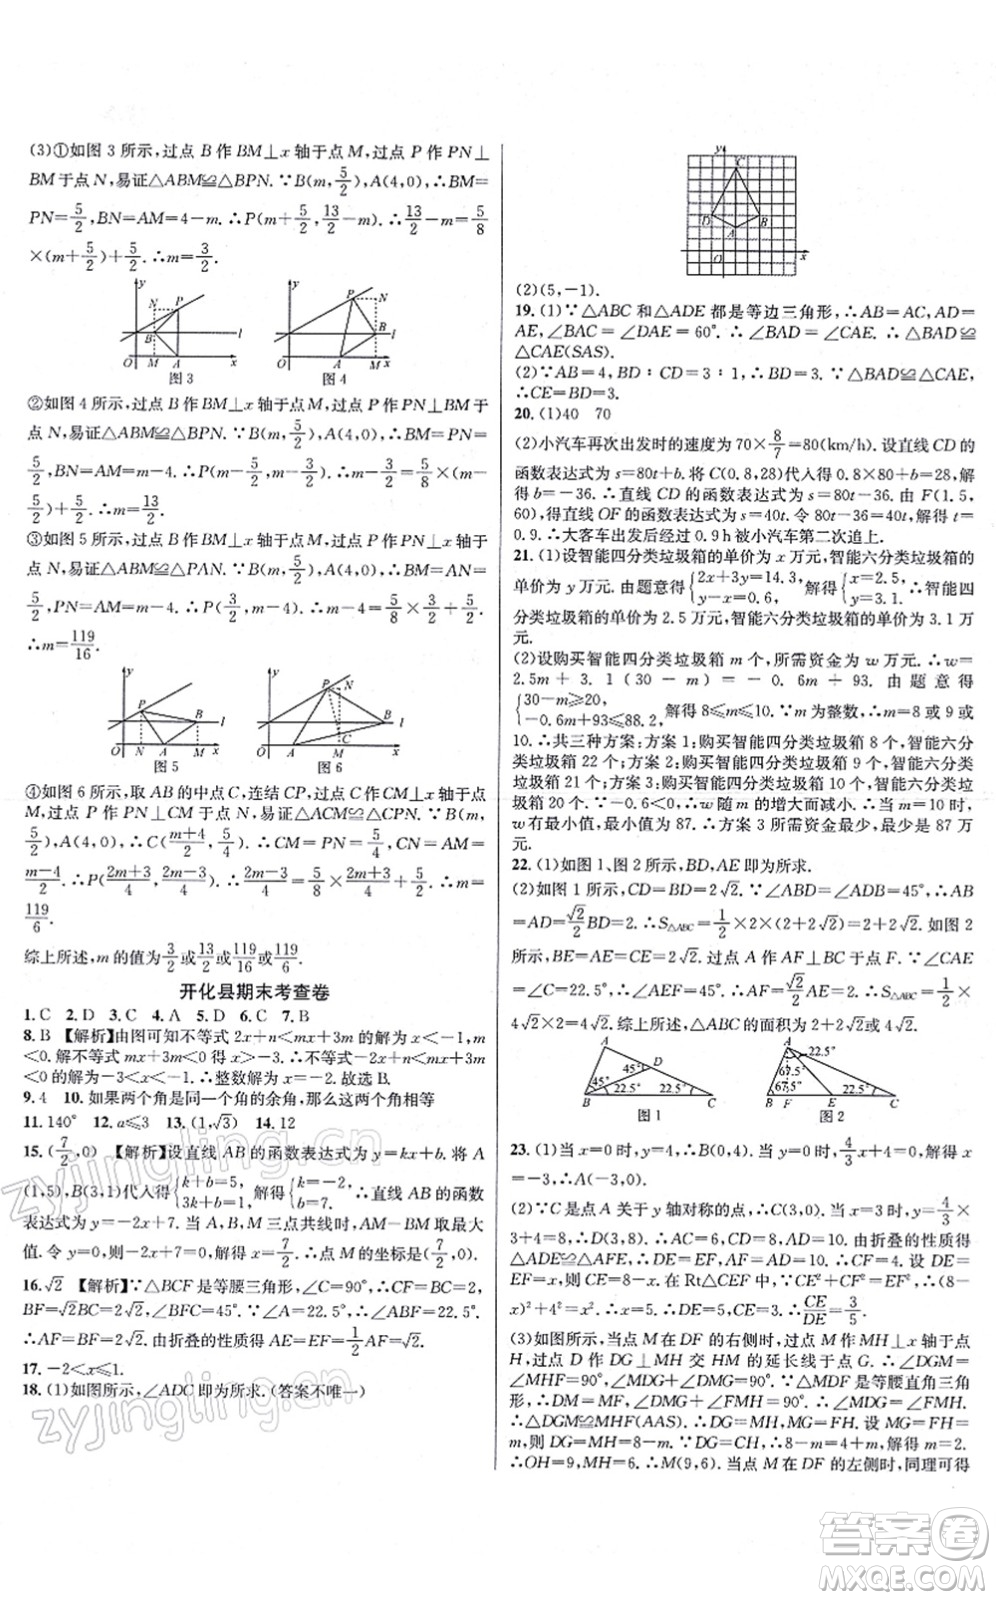 (3)①如图 3 所示,过点 B 作 BM⊥x 轴于点 M,过点 P 作 PN⊥
BM于点 N,易证△ABM≌△BPN.∵B(m,5/2),A(4,0),∴BM=
PN=5/2,BN=AM=4-m.∴P(m+5/2,13/2-m).∴13/2-m=5/8
×(m+5/2)+5/2.∴m=3/2.
y
N
P
B
l
O
M
A
x
图 3
y
P
N
B
l
O
A
M
x
图 4
②如图 4 所示,过点 B 作 BM⊥x 轴于点 M,过点 P 作 PN⊥BM 于
点 N,易证△ABM≌△BPN.∵B(m,5/2),A(4,0),∴BM=PN=
5/2,BN=AM=m-4.∴P(m-5/2,m-3/2).∴m-3/2=5/8×(m-
5/2)+5/2.∴m=13/2.
③如图 5 所示,过点 B 作 BM⊥x 轴于点 M,过点 P 作 PN⊥x 轴于
点 N,易证△ABM≌△PAN.∵B(m,5/2),A(4,0),∴BM=AN=
5/2,PN=AM=m-4.∴P(3/2,m-4).∴m-4=5/8×3/2+5/2.
∴m=119/16.
y
P
B
l
O
N
A
M
x
图 5
y
P
N
B
l
C
O
A
M
x
图 6
④如图 6 所示,取 AB 的中点 C,连结 CP,过点 C 作 CM⊥x 轴于点
M,过点 P 作 PN⊥CM 于点 N,易证△ACM≌△CPN.∵B(m,
5/2),A(4,0),∴C(m+4/2,5/4).∴CM=PN=5/4,CN=AM=
m-4/2.∴P(2m+3/4,2m-3/4).∴2m-3/4=5/8×2m+3/4+5/2.∴m=
119/6.
综上所述,m 的值为3/2或13/2或119/16或119/6.
开化县期末考查卷
1.C 2.D 3.C 4.A 5.D 6.C 7.B
8.B 【解析】由图可知不等式 2x+n<mx+3m 的解为 x<-1.m
<0.解不等式 mx+3m<0 得 x>-3.∴不等式组 2x+n<mx+3m
<0 的解为-3<x<-1.∴整数解为-2.故选 B.
9.4 10.如果两个角是同一个角的余角,那么这两个角相等
11.140° 12.a≤3 13.(1,√3) 14.12
15.(7/2,0) 【解析】设直线 AB 的函数表达式为 y=kx+b.将 A
(1,5),B(3,1)代入得{k+b=5, 3k+b=1,解得{k=-2, b=7.∴直线 AB 的函数
表达式为 y=-2x+7.当 A、B、M 三点共线时,AM-BM 取最大
值.令-2x+7=0,解得 x=7/2.∴点 M 的坐标是(7/2,0).
16.√2 【解析】∵△BCF 是等腰三角形,∠C=90°,∴BC=CF=2,
BF=√2BC=2√2,∠BFC=45°.∵∠A=22.5°,∴∠ABF=22.5°.
∴AF=BF=2√2.由折叠的性质得 AE=EF=1/2AF=√2.
17.-2<x≤1.
18.(1)如图所示,∠ADC 即为所求.(答案不唯一)
y
C
D
B
A
O
x
(2)(5,-1).
19.(1)∵△ABC 和△ADE 都是等边三角形,∴AB=AC,AD=
AE,∠BAC=∠DAE=60°.∴∠BAD=∠CAE.∴△BAD≌
△CAE(SAS).
(2)∵AB=4,BD∶CD=3∶1,∴BD=3.∵△BAD≌△CAE,
∴CE=BD=3.
20.(1)40 70
(2)小汽车再次出发时的速度为 70×8/7=80(km/h).设直线 CD 的
函数表达式为 s=80t+b.将 C(0.8,28)代入得 0.8×80+b=28,解
得 b=-36.∴直线 CD 的函数表达式为 s=80t-36.由 F(1.5,
60),得直线 OF 的函数表达式为 s=40t.令 80t-36=40t,解得 t=
0.9.∴大客车出发后经过 0.9 h 被小汽车第二次追上.
21.(1)设智能四分类垃圾箱的单价为 x 万元,智能六分类垃圾箱的
单价为 y 万元.由题意得{2x+3y=14.3, y-x=0.6,解得{x=2.5, y=3.1.∴智能四
分类垃圾箱的单价为 2.5 万元,智能六分类垃圾箱的单价为 3.1 万
元.
(2)设购买智能四分类垃圾箱 m 个,所需资金为 w 万元.∴w=
2.5m+3.1(30-m)=-0.6m+93.由题意得
{30-m≥20, -0.6m+93≤88.2,解得 8≤m≤10.∵m 为整数,∴m=8 或 9 或
10.∴共三种方案:方案 1:购买智能四分类垃圾箱 8 个,智能六分
类垃圾箱 22 个;方案 2:购买智能四分类垃圾箱 9 个,智能六分类垃
圾箱 21 个;方案 3:购买智能四分类垃圾箱 10 个,智能六分类垃圾
箱 20 个.∵-0.6<0,∴w 随 m 的增大而减小.∴当 m=10 时,
w 有最小值,最小值为 87.∴方案 3 所需资金最少,最少是 87 万
元.
22.(1)如图 1、图 2 所示,BD,AE 即为所求.
(2)如图 1 所示,CD=BD=2√2.∵∠ABD=∠ADB=45°,∴AB
=AD=√2/2BD=2.∴S△ABC=1/2×2×(2+2√2)=2+2√2.如图 2
所示,BE=AE=CE=2√2.过点 A 作 AF⊥BC 于点 F.∵∠EAC
=∠C=22.5°,∴∠AEB=45°.∴AF=√2/2AE=2.∴S△ABC=1/2×
4√2×2=4√2.综上所述,△ABC 的面积为 2+2√2或 4√2.
A
45°
D
45°
22.5°
22.5°
B
C
图 1
A
22.5°
67.5°
67.5°
22.5°
B
F
E
C
图 2
23.(1)当 x=0 时,y=4,∴B(0,4).当 y=0 时,4/3x+4=0,解得 x
=-3.∴A(-3,0).
(2)∵C 是点 A 关于 y 轴对称的点,∴C(3,0).当 x=3 时,y=4/3
×3+4=8,∴D(3,8).∴AC=6,CD=8,AD=10.由折叠的性质得
△ADE≌△AFE.∴EF=DE,AF=AD=10.∴CF=AF-AC=4.
设 DE=x,则 CE=8-x.在 Rt△CEF 中,∵CE²+CF²=EF²,∴(8-
x)²+4²=x²,解得 x=5.∴EF=DE=5,CE=3.∴CE/DE=3/5.
(3)如图所示,当点 M 在 DF 的右侧时,过点 M 作 MH⊥x 轴于点
H,过点 D 作 DG⊥MH 交 HM 的延长线于点 G.∴∠DGM=
∠MHF=90°,∠DMG+∠MDG=90°.∵△MDF 为等腰直角三角
形,∴DM=MF,∠DMF=90°.∴∠DMG+∠FMH=90°.∴∠MDG=∠FMH.
∴△DGM≌△MHF(AAS).∴DG=MH,GM=FH.设 GM=FH=
m,则 DG=MH=8-m.∵OF=7,OC=3,∴8-m-4=m.解得 m=2.
∴OH=9,MH=6.∴M(9,6).当点 M 在 DF 的左侧时,同理可得
zyjingling.cn
zyjingling.cn
答案卷
MXQE.COM